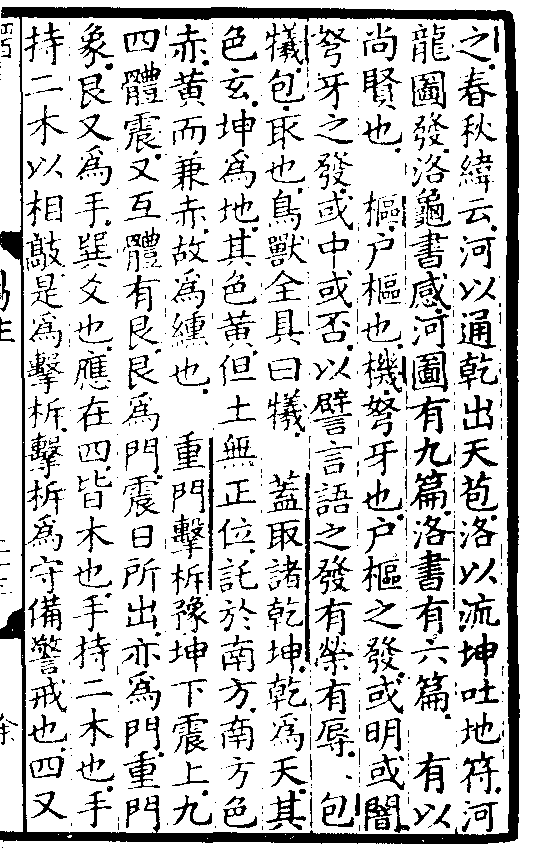 之春秋緯云河以通乾出天苞洛以流坤吐地符河
龍圖發洛龜書感河圖有九篇洛書有六篇　有以
尚賢也　樞户樞也機弩牙也户樞之發或明或闇
弩牙之發或中或否以譬言語之發有榮有辱　包
犧包取也鳥獸全具曰犧　蓋取諸乾坤乾爲天其
色玄坤爲地其色黄但土無正位託於南方南方色
赤黄而兼赤故爲纁也　重門擊柝豫坤下震上九
四體震又互體有艮艮爲門震日所出亦爲門重門
象艮又爲手巽爻也應在四皆木也手持二木也手
持二木以相敲是爲擊柝擊柝爲守備警戒也四又